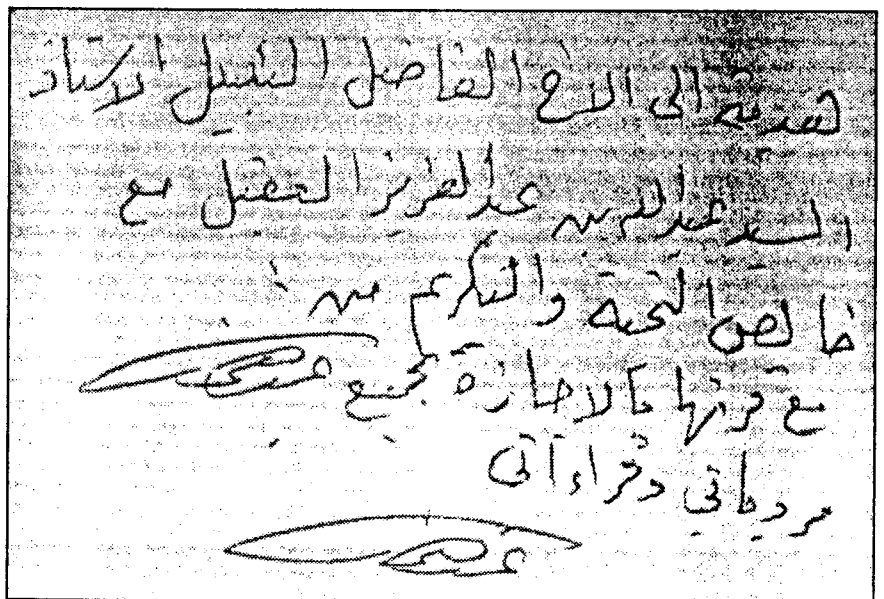 هدية الى الاخ الفاضل النبيل الاستاذ
السيد عبدالله بن عبدالعزيز العقيل مع
خالص التحية والتكريم من :
مع قرنها بالاجازة بجميع
مروياتي وقراءاتى